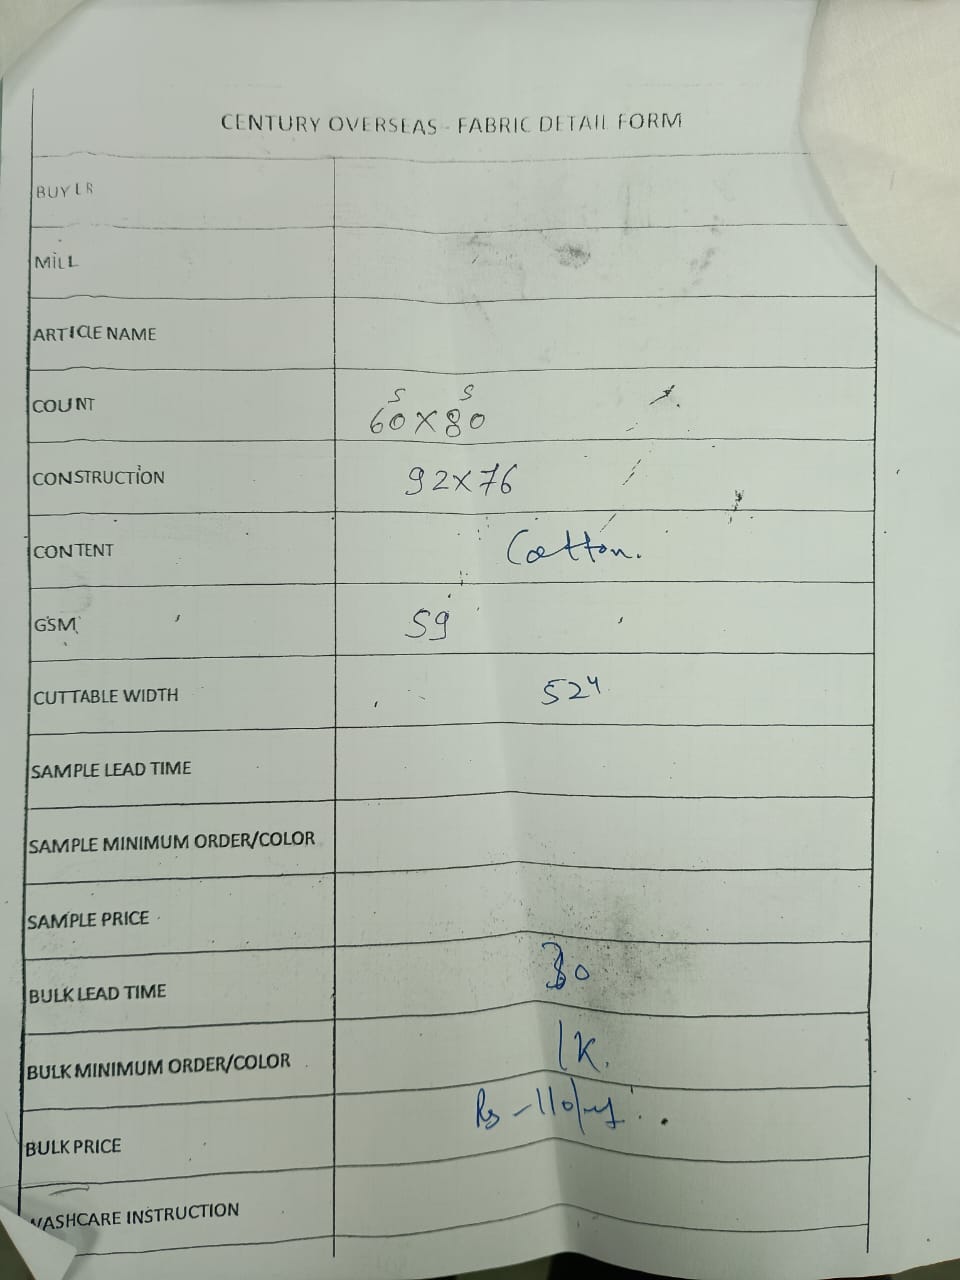 CENTURY OVERSEAS - FABRIC DETAIL FORM
BUYER
MILL
ARTICLE NAME
COUNT 60s X 80s
CONSTRUCTION 92X76
CONTENT Cotton.
GSM 59
CUTTABLE WIDTH 52"
SAMPLE LEAD TIME
SAMPLE MINIMUM ORDER/COLOR
SAMPLE PRICE
BULK LEAD TIME 30
BULK MINIMUM ORDER/COLOR 1K.
BULK PRICE Rs - 110/
WASHCARE INSTRUCTION